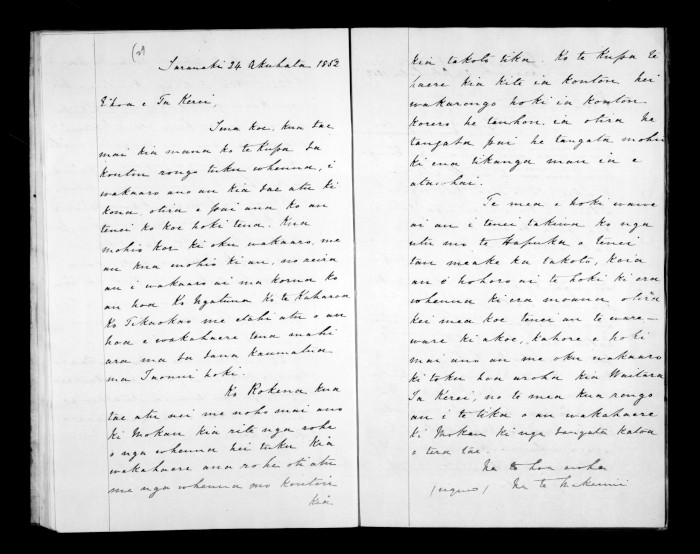 Taranaki 24 Akuhata 1852
E hoa e Ta Kerei,
Tena koe, kua tae
mai kia mana ko te Kupa ta
koutou rongo tuku whenua, i
wakaaro ano au kia tae atu ki
kona, otira e pai ana ko au
tenei ko koe hoki tena. Kua
mohio koe ki oku wakaaro, me
au kua mohio ki au, no reira
au i wakaaro ai ma korua ko
au hoa Ko Ngatiua Ko te Kaharoa
Ko Tikaokao me etahi atu o au
hoa e wakahaere tena mahi
ara ma ta tana kaumatua
ma Taonui hoki.
Ko Rokena kua
tae atu nei me noho mai ano
ki Mokau kia rite nga rohe
o nga whenua hei tuku kia
wakahaere ana rohe oti atu
me nga whenua mo koutou
kia
kia takoto tika. Ko te Kupa te
haere kia kite ia koutou hei
wakarongo hoki ia koutou
korero he tauhou ia otira he
tangata pai he tangata mohio
ki ena tikanga mau ia e
atawhai.
Te mea e hoki wawe
ai au i tenei takiwa ko nga
utu mo te Hapuka a tenei
tau meake ka takoto, koia
au e hohoro ai te hoki ki era
whenua ki era mouna otira
kei mea koe tenei au te ware-
ware ki a koe, kahore e hoki
mai ano au me oku wakaaro
ki toku hoa aroha kia Waitara
Ta Kerei, no te mea kua rongo
au i te tika o au wakahaere
ki Mokau ki nga tangata katoa
o tera tae.
Na to hoa aroha
(signed) Na te Makarini